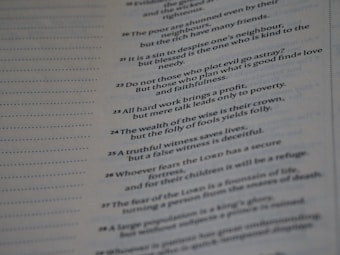 and the wicked
righteous.
20 The poor are shunned even by their
neighbours,
but the rich have many friends.
21 It is a sin to despise one's neighbour,
but blessed is the one who is kind to the
needy.
22 Do not those who plot evil go astray?
But those who plan what is good find love
and faithfulness.
23 All hard work brings a profit,
but mere talk leads only to poverty.
24 The wealth of the wise is their crown,
but the folly of fools yields folly.
25 A truthful witness saves lives,
but a false witness is deceitful.
26 Whoever fears the LORD has a secure
fortress,
and for their children it will be a refuge.
27 The fear of the LORD is a fountain of life,
turning a person from the snares of death.
28 A large population is a king's glory,
but without subjects a prince is ruined.
29 Whoever is patient has great understanding,
one who is quick-tempered displays